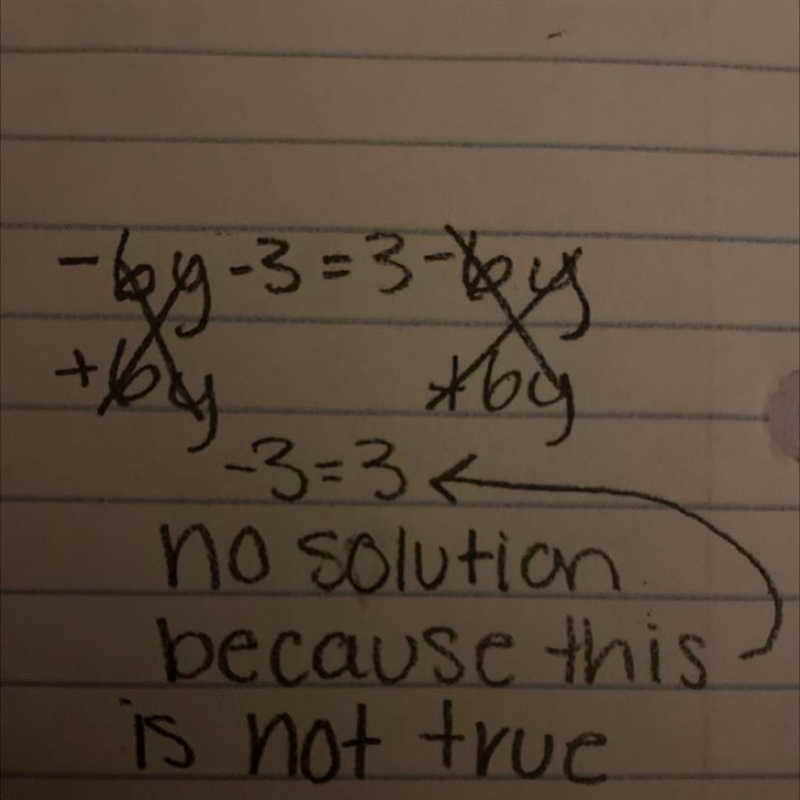 -6y-3=3-6y
+6y +6y
-3=3
no solution
because this
is not true